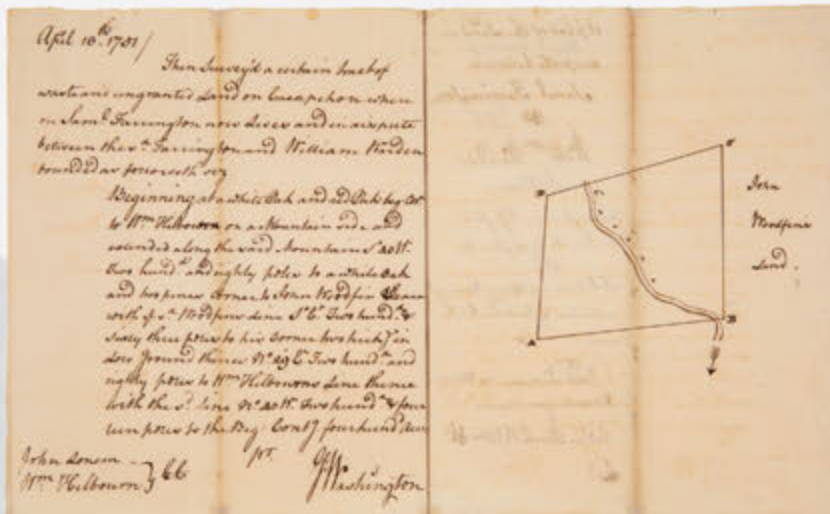 April 10th. 1751/
Then Survey'd a certain tract of
waste and ungranted Land on Cacapehon where
on Saml. Farrington now Lives and in dispute
between the sd. Farrington and William Warden
bounded as followeth viz
Beginning at a white Oak and red Oak beg Cor
to Wm. Hilbourn on a Mountain side and
extended along the said Mountain So. 40 W.
Two hundd. and eighty poles to a white Oak
and two pines Corner to John Woodfin thence
with ye. sd. Woodfins Line Two hundd. &
three poles to his Corner two in
Low Ground thence No. 49 Et. Two hundd. and
eighty poles to Wm. Hilbourns Line thence
with the sd. line No. 40 W. Two hundd. & four
poles to the Beg. Conty four hundd.
pr.
John Lonem
Wm. Hilbourn } CC
GWashington
D
C
John
Woodfin's
Land.
A
B